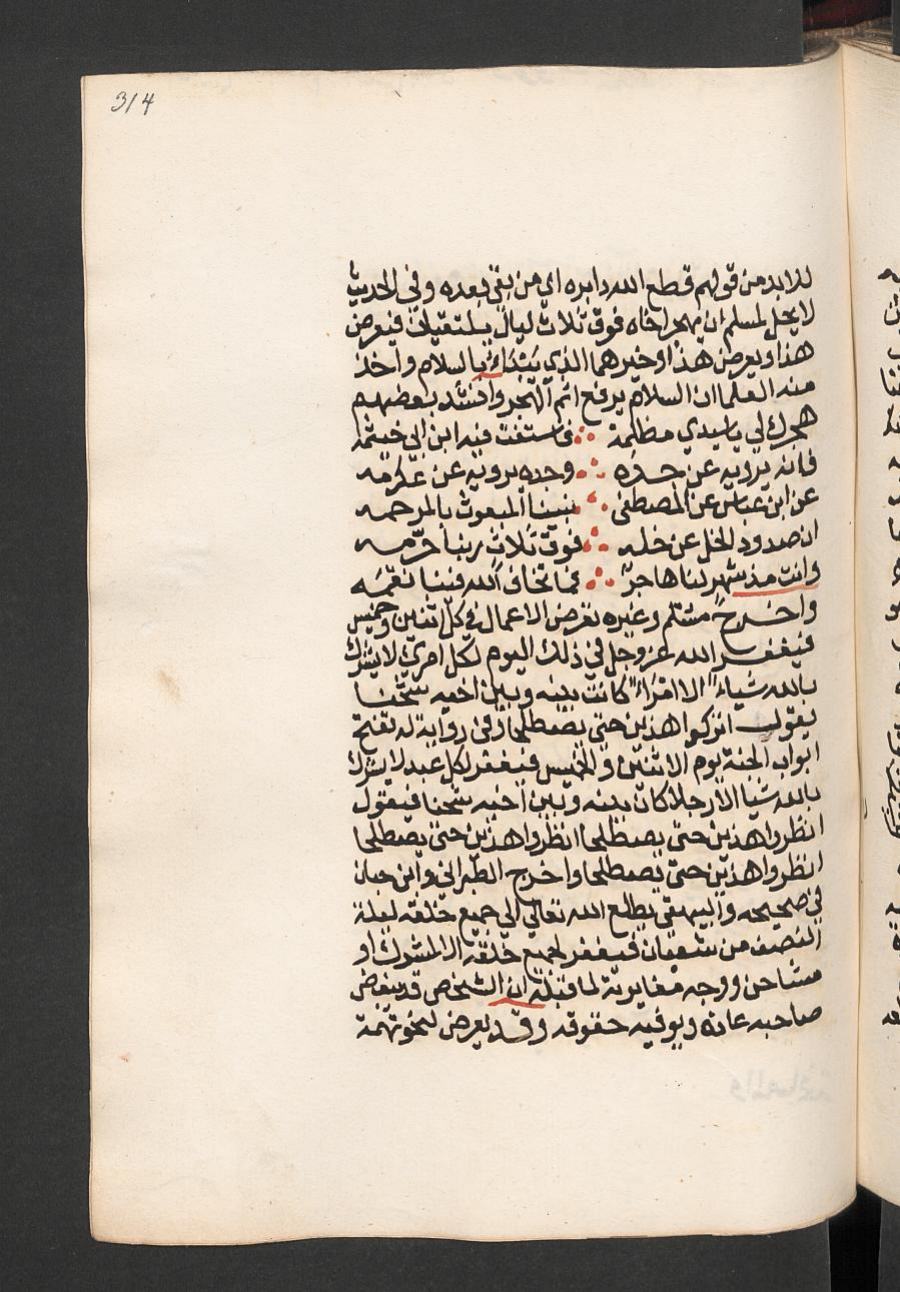 314
للابد من قولهم قطع الله دابره اي من بقي بعده وفي الحديث
لا يحل لمسلم ان يهجر اخاه فوق ثلاث ليال يلتقيان فيعرض
هذا ويعرض هذا وخيرهما الذي يبتدئ بالسلام واخذ
منه العلما ان السلام يرفع اثم الهجر وانشد بعضهم
هجرك لي يا سيدي مظلمة ∴ فاستفت فيه ابن ابي خيثمه
فانه يرويه عن جده ∴ وجده يرويه عن عكرمه
عن ابن عباس عن المصطفى ∴ نبينا المبعوث بالمرحمه
ان صدود الخل عن خله ∴ فوق ثلاث ربنا حرمه
وانت مذ شهر لنا هاجر ∴ فما تخاف الله فينا نقمه
واخرج مسلم وغيره تعرض الاعمال في كل اثنين وخميس
فيغفر الله عز وجل في ذلك اليوم لكل امرئ لا يشرك
بالله شياء الا امراء كانت بينه وبين اخيه شحنا
يقول اتركوا هذين حتى يصطلحا وفي رواية له تفتح
ابواب الجنة يوم الاثنين والخميس فيغفر لكل عبد لا يشرك
بالله شيا الا رجلا كان بينه وبين اخيه شحنا فيقول
انظروا هذين حتى يصطلحا انظروا هذين حتى يصطلحا
انظروا هذين حتى يصطلحا واخرج الطبراني وابن حبان
في صحيحه والبيهقي يطلع الله تعالي الي جميع خلقه ليلة
النصف من شعبان فيغفر لجميع خلقه الا لمشرك او
مشاحن ووجه مغايرية لما قبله ان الشخص قد يبغض
صاحبه عادة ويوفيه حقوقه وقد يعرض لنحو تهمة